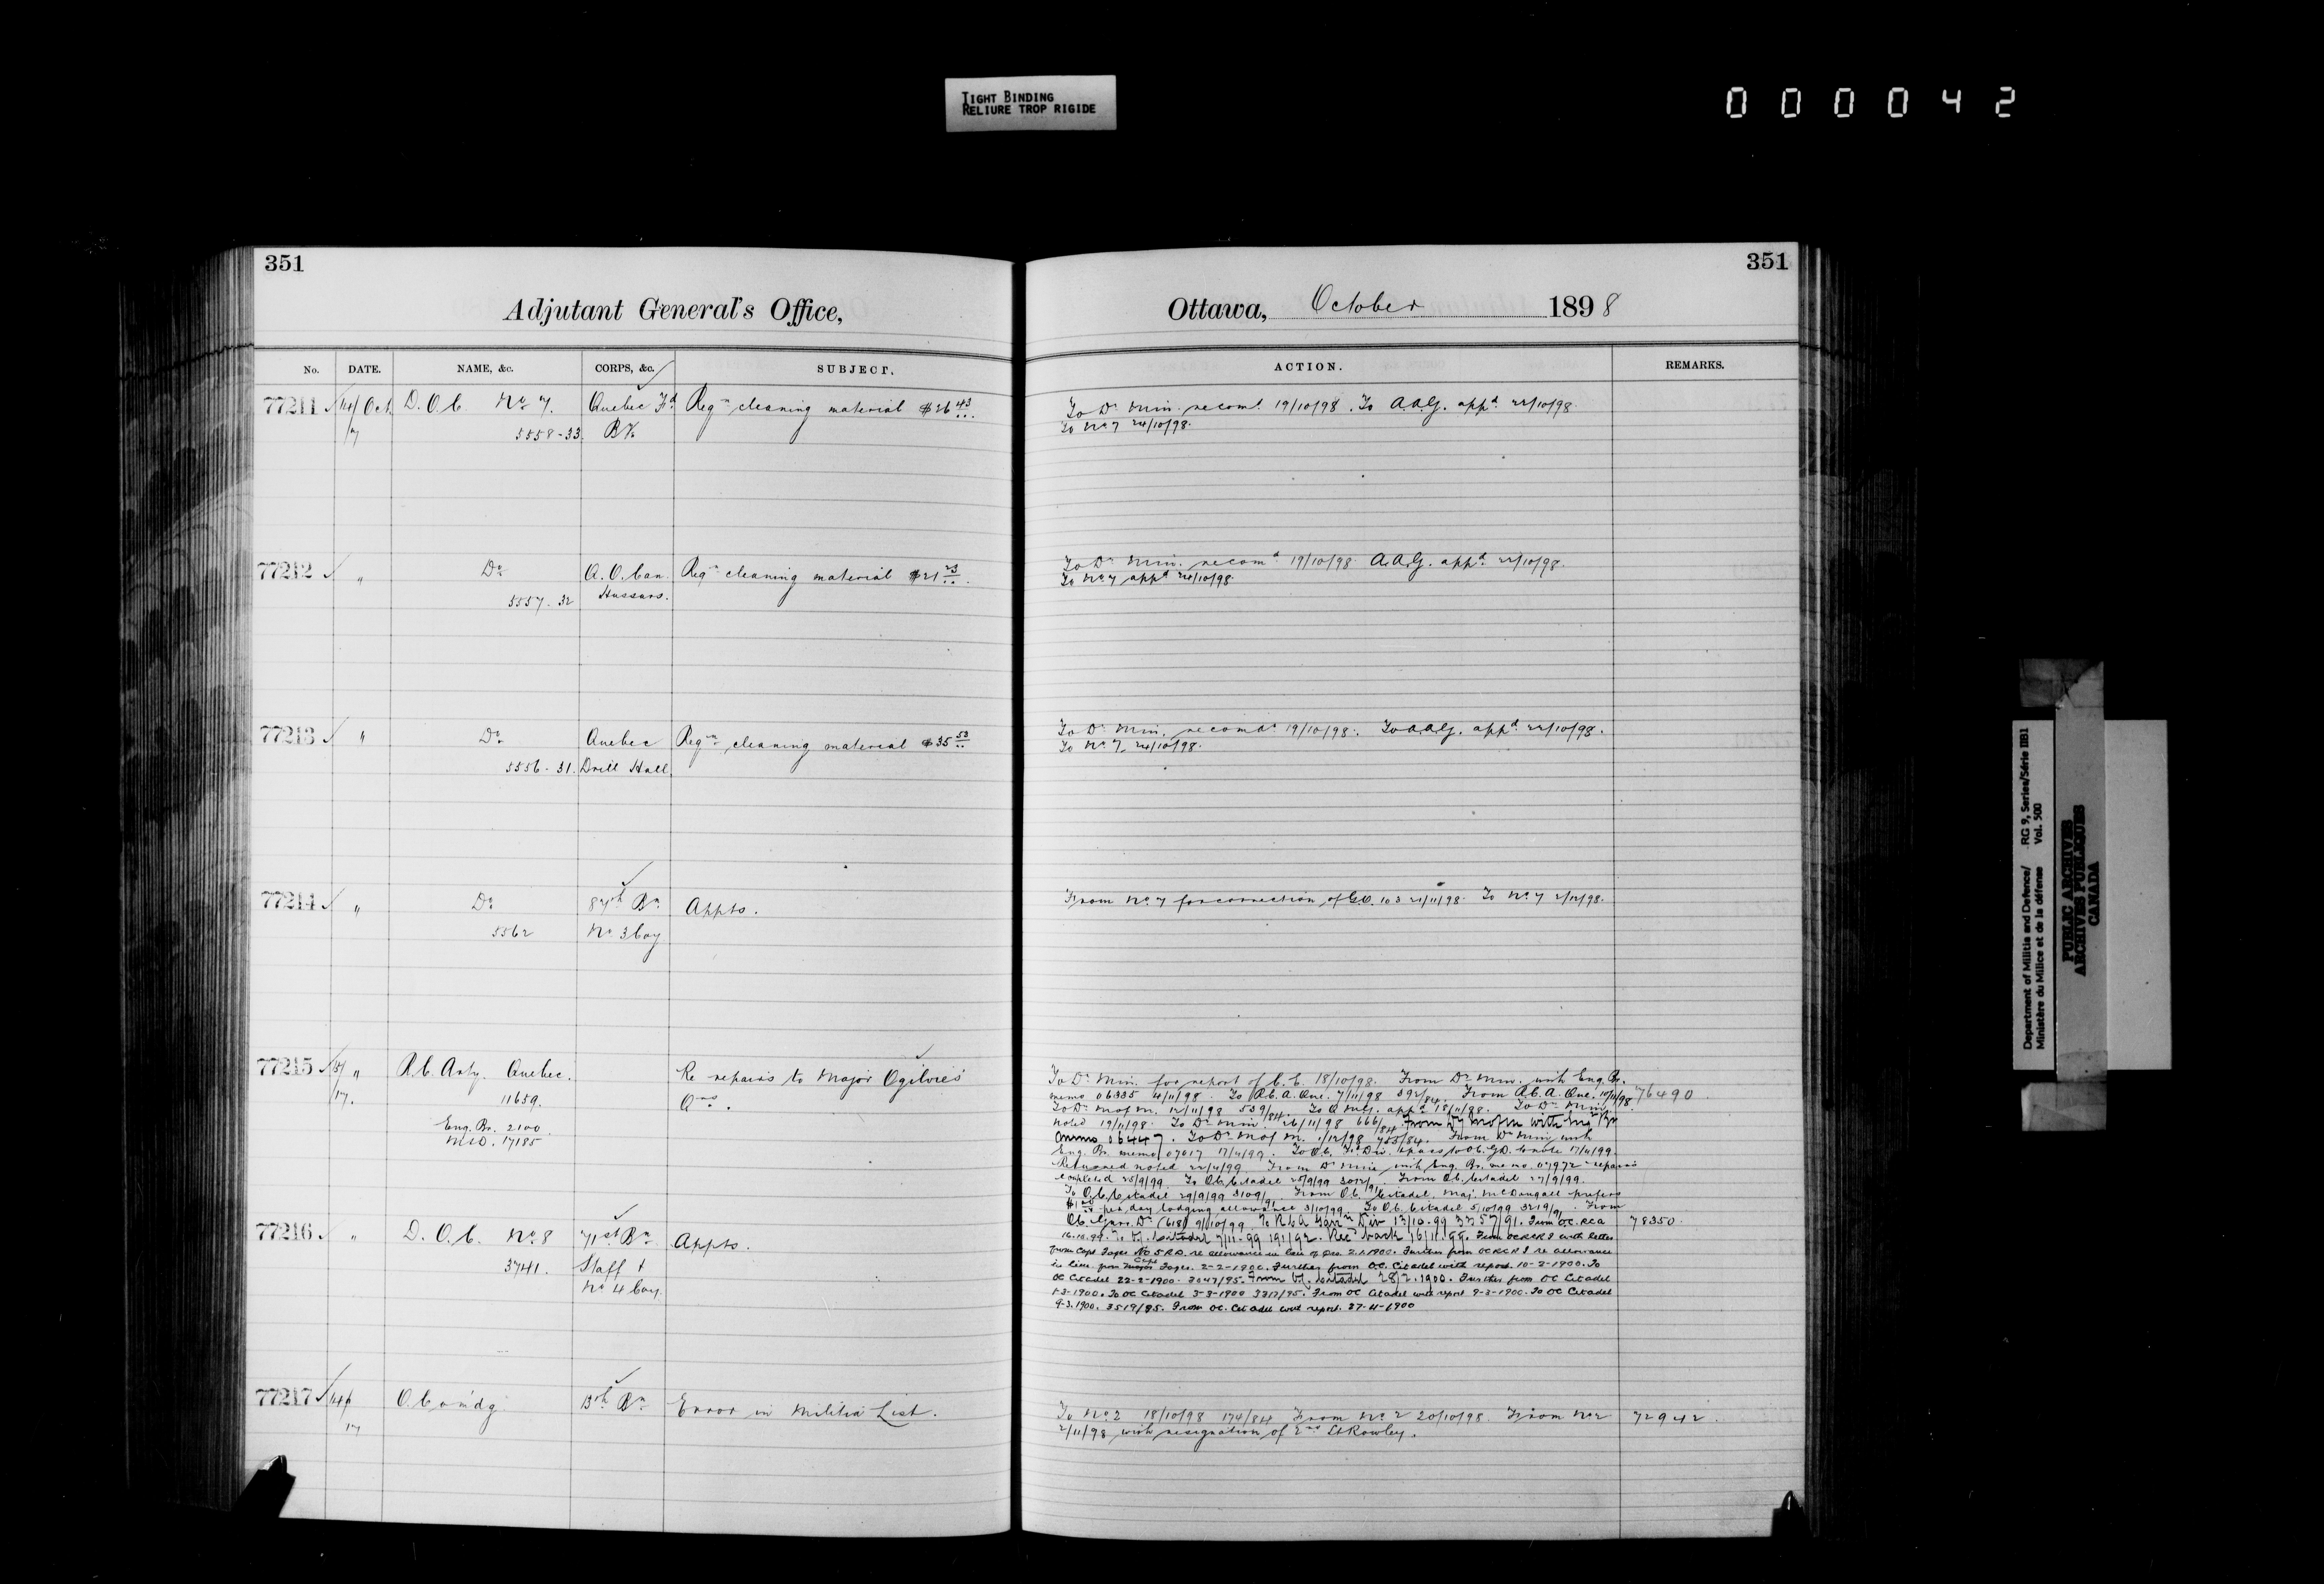 TIGHT BINDING
RELIURE TROP RIGIDE
000042
351
Adjutant General's Office,
No. DATE. NAME, &c. CORPS, &c. SUBJECT.
77211 14/ Oct D.O.C. No 7. Quebec Fd Reqn cleaning material $26 43
17 5558-33 By
77212 " Do Q.O. Can. Reqn cleaning material $21 23
5557-32 Hussars.
77213 " Do Quebec Reqn cleaning material $35 53
5556-31. Drill Hall
77214 " Do 87th Bn Appts.
5562 No 3 Coy
77215 15/ " R.C. Arty. Quebec. Re repairs to Major Ogilvie's
17. 11659. Qrs.
Eng. Br. 2100.
M&D. 17185
77216 " D.O.C. No 8 71st Bn Appts.
3741. Staff &
No 4 Coy.
77217 14/ O. Comdg. 13th Bn Error in Militia List.
17
351
Ottawa, October 1898
ACTION. REMARKS.
To Dr Min. recomd. 19/10/98. To A.A.G. appd 22/10/98.
To No 7 24/10/98.
To Dr Min. recomd 19/10/98. A.A.G. appd 22/10/98.
To No 7 appd 24/10/98.
To Dr Min. recomd 19/10/98. To A.A.G. appd 22/10/98.
To No 7, 24/10/98.
From No 7 for correction of G.O. 103 21/11/98. To No 7 2/12/98.
To Dr Min. for report of C.E. 18/10/98. From Dr Min. with Eng. Br.
memo 06335 4/11/98. To R.C.A. Que. 7/11/98 392/84. From R.C.A. Que. 10/11/98 76490.
To Dr M of M. 12/11/98 539/84. To Q.M.G. appd 18/11/98. To Dr Min.
noted 19/11/98. To Dr Min. 26/11/98 666/84 From Dy M of M with Eng Br
memo 06447. To Dr M of M. 1/12/98 755/84. From Dr Min with
Eng. Br. memo 07017 17/4/99. To O.C. Fd Div. to note 17/4/99.
Returned noted 22/4/99. From Dr Min with Eng. Br. memo. 07972 repairs
completed 25/9/99. To O.C. Citadel 25/9/99 3012/91. From O.C. Citadel 27/9/99.
To O.C. Citadel 29/9/99 3109/91. From O.C. Citadel, Maj. McDougall prefers
$1.00 per day lodging allowance 3/10/99. To O.C. Citadel 5/10/99 3219/91. From
O.C. Garr. Dn (618) 9/10/99. To R.C.A. Garrn Div 13/10.99 3357/91. From O.C. RCA 78350.
16.10.99. To O.C. Citadel 7/11.99 191/92. Recd back 16/11.99. From OC RCRI with letter
from Capt Fages No 5 R.D. re allowance in lieu of Qrs. 2.1.1900. Further from OC RCRI re allowance
in lieu from Capt Fages. 2-2-1900. Further from OC. Citadel with report. 10-2-1900. To
OC Citadel 22-2-1900. 3047/95. From O.C. Citadel 28/2.1900. Further from OC Citadel
1-3-1900. To OC Citadel 3-3-1900 3317/95. From OC Citadel with report 9-3-1900. To OC Citadel
9-3.1900. 3519/95. From OC. Citadel with report. 27-4-1900
To No 2 18/10/98 174/84 From No 2 20/10/98. From No 2 72942.
2/11/98 with resignation of 2nd Lt Rowley.
Department of Militia and Defence/ RG 9, Series/Série IIB1
Ministère du Milice et de la défense Vol. 500
PUBLIC ARCHIVES
ARCHIVES PUBLIQUES
CANADA